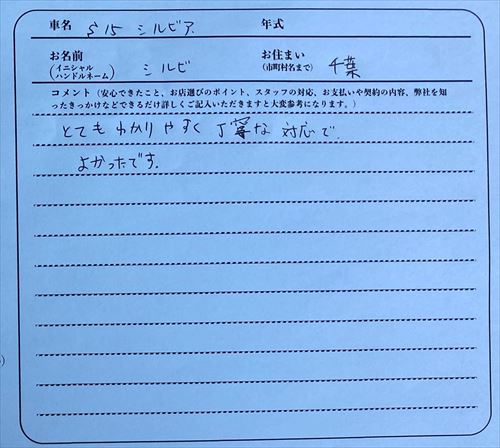 車名 S15 シルビア 年式
お名前 お住まい
(イニシャル ハンドルネーム) シルビ (市町村名まで) 千葉
コメント (安心できたこと、お店選びのポイント、スタッフの対応、お支払いや契約の内容、弊社を知
ったきっかけなどできるだけ詳しくご記入いただきますと大変参考になります。)
とてもわかりやすく丁寧な対応で
よかったです。